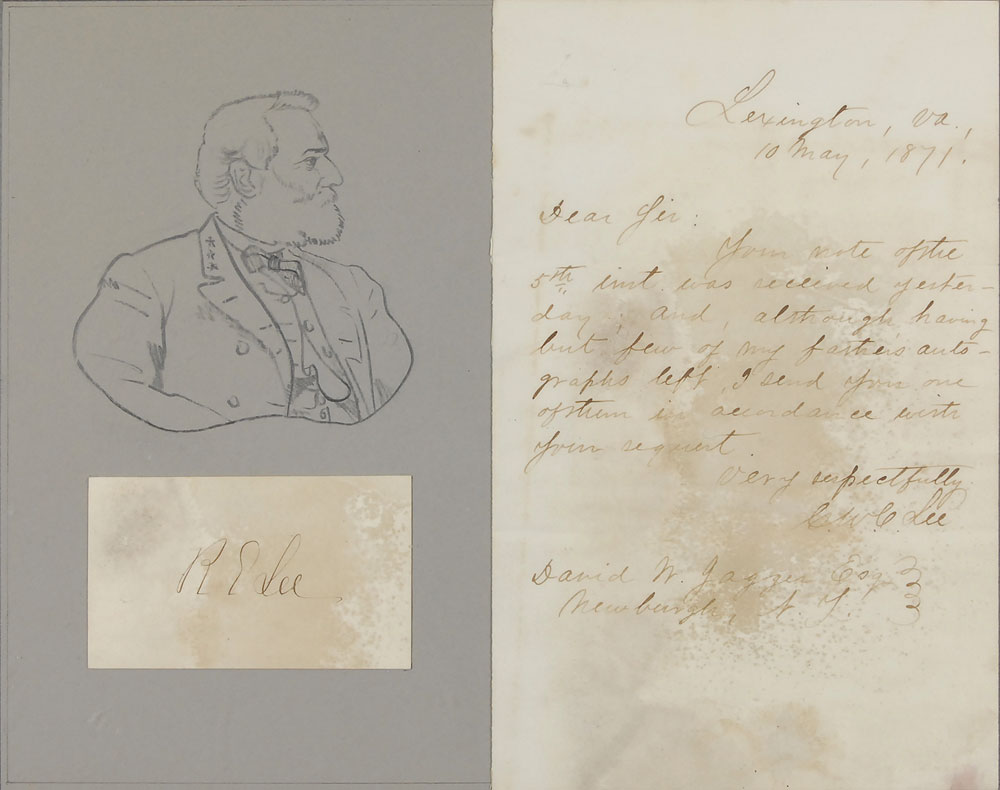 R E Lee
Lexington, Va.,
10 May, 1871.
Dear Sir:
Your note of the
5th inst. was received yester-
day; and, although having
but few of my father's auto-
graphs left, I send you one
of them in accordance with
your request.
Very respectfully
G W C Lee
David W. Jagger Esq.
Newburgh, N. Y.